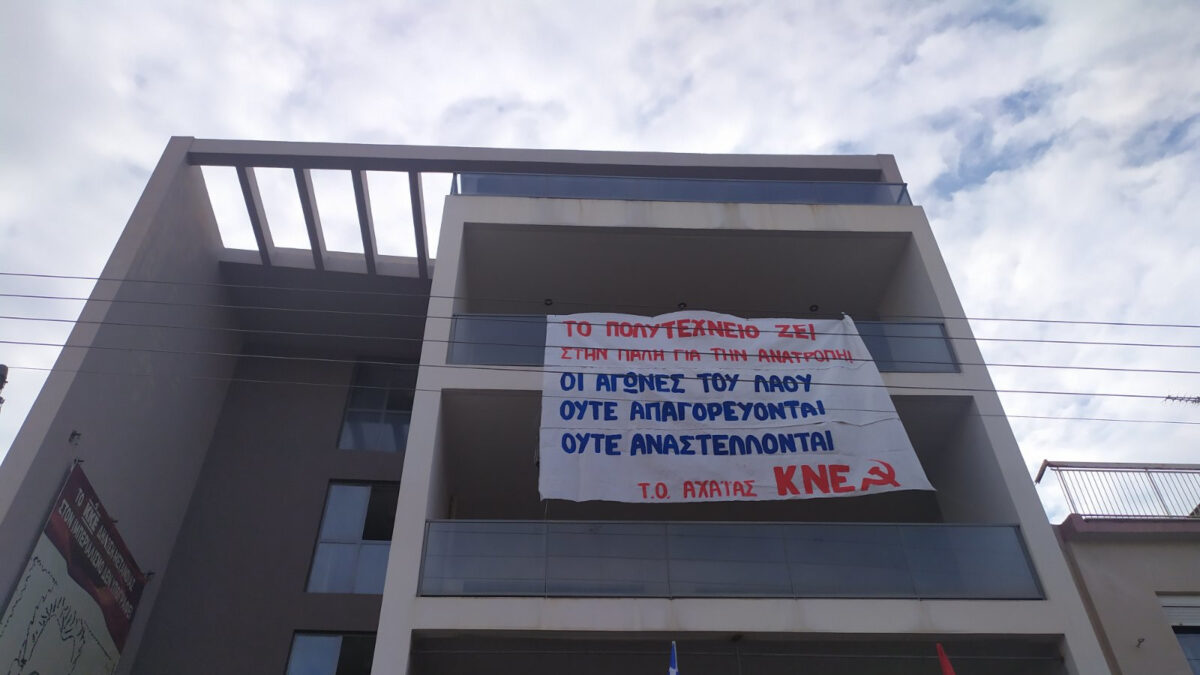 ΤΟ ΠΟΛΥΤΕΧΝΕΙΟ ΖΕΙ
ΣΤΗΝ ΠΑΛΗ ΓΙΑ ΤΗΝ ΑΝΑΤΡΟΠΗ!
ΟΙ ΑΓΩΝΕΣ ΤΟΥ ΛΑΟΥ
ΟΥΤΕ ΑΠΑΓΟΡΕΥΟΝΤΑΙ
ΟΥΤΕ ΑΝΑΣΤΕΛΛΟΝΤΑΙ
Τ.Ο. ΑΧΑΪΑΣ ΚΝΕ